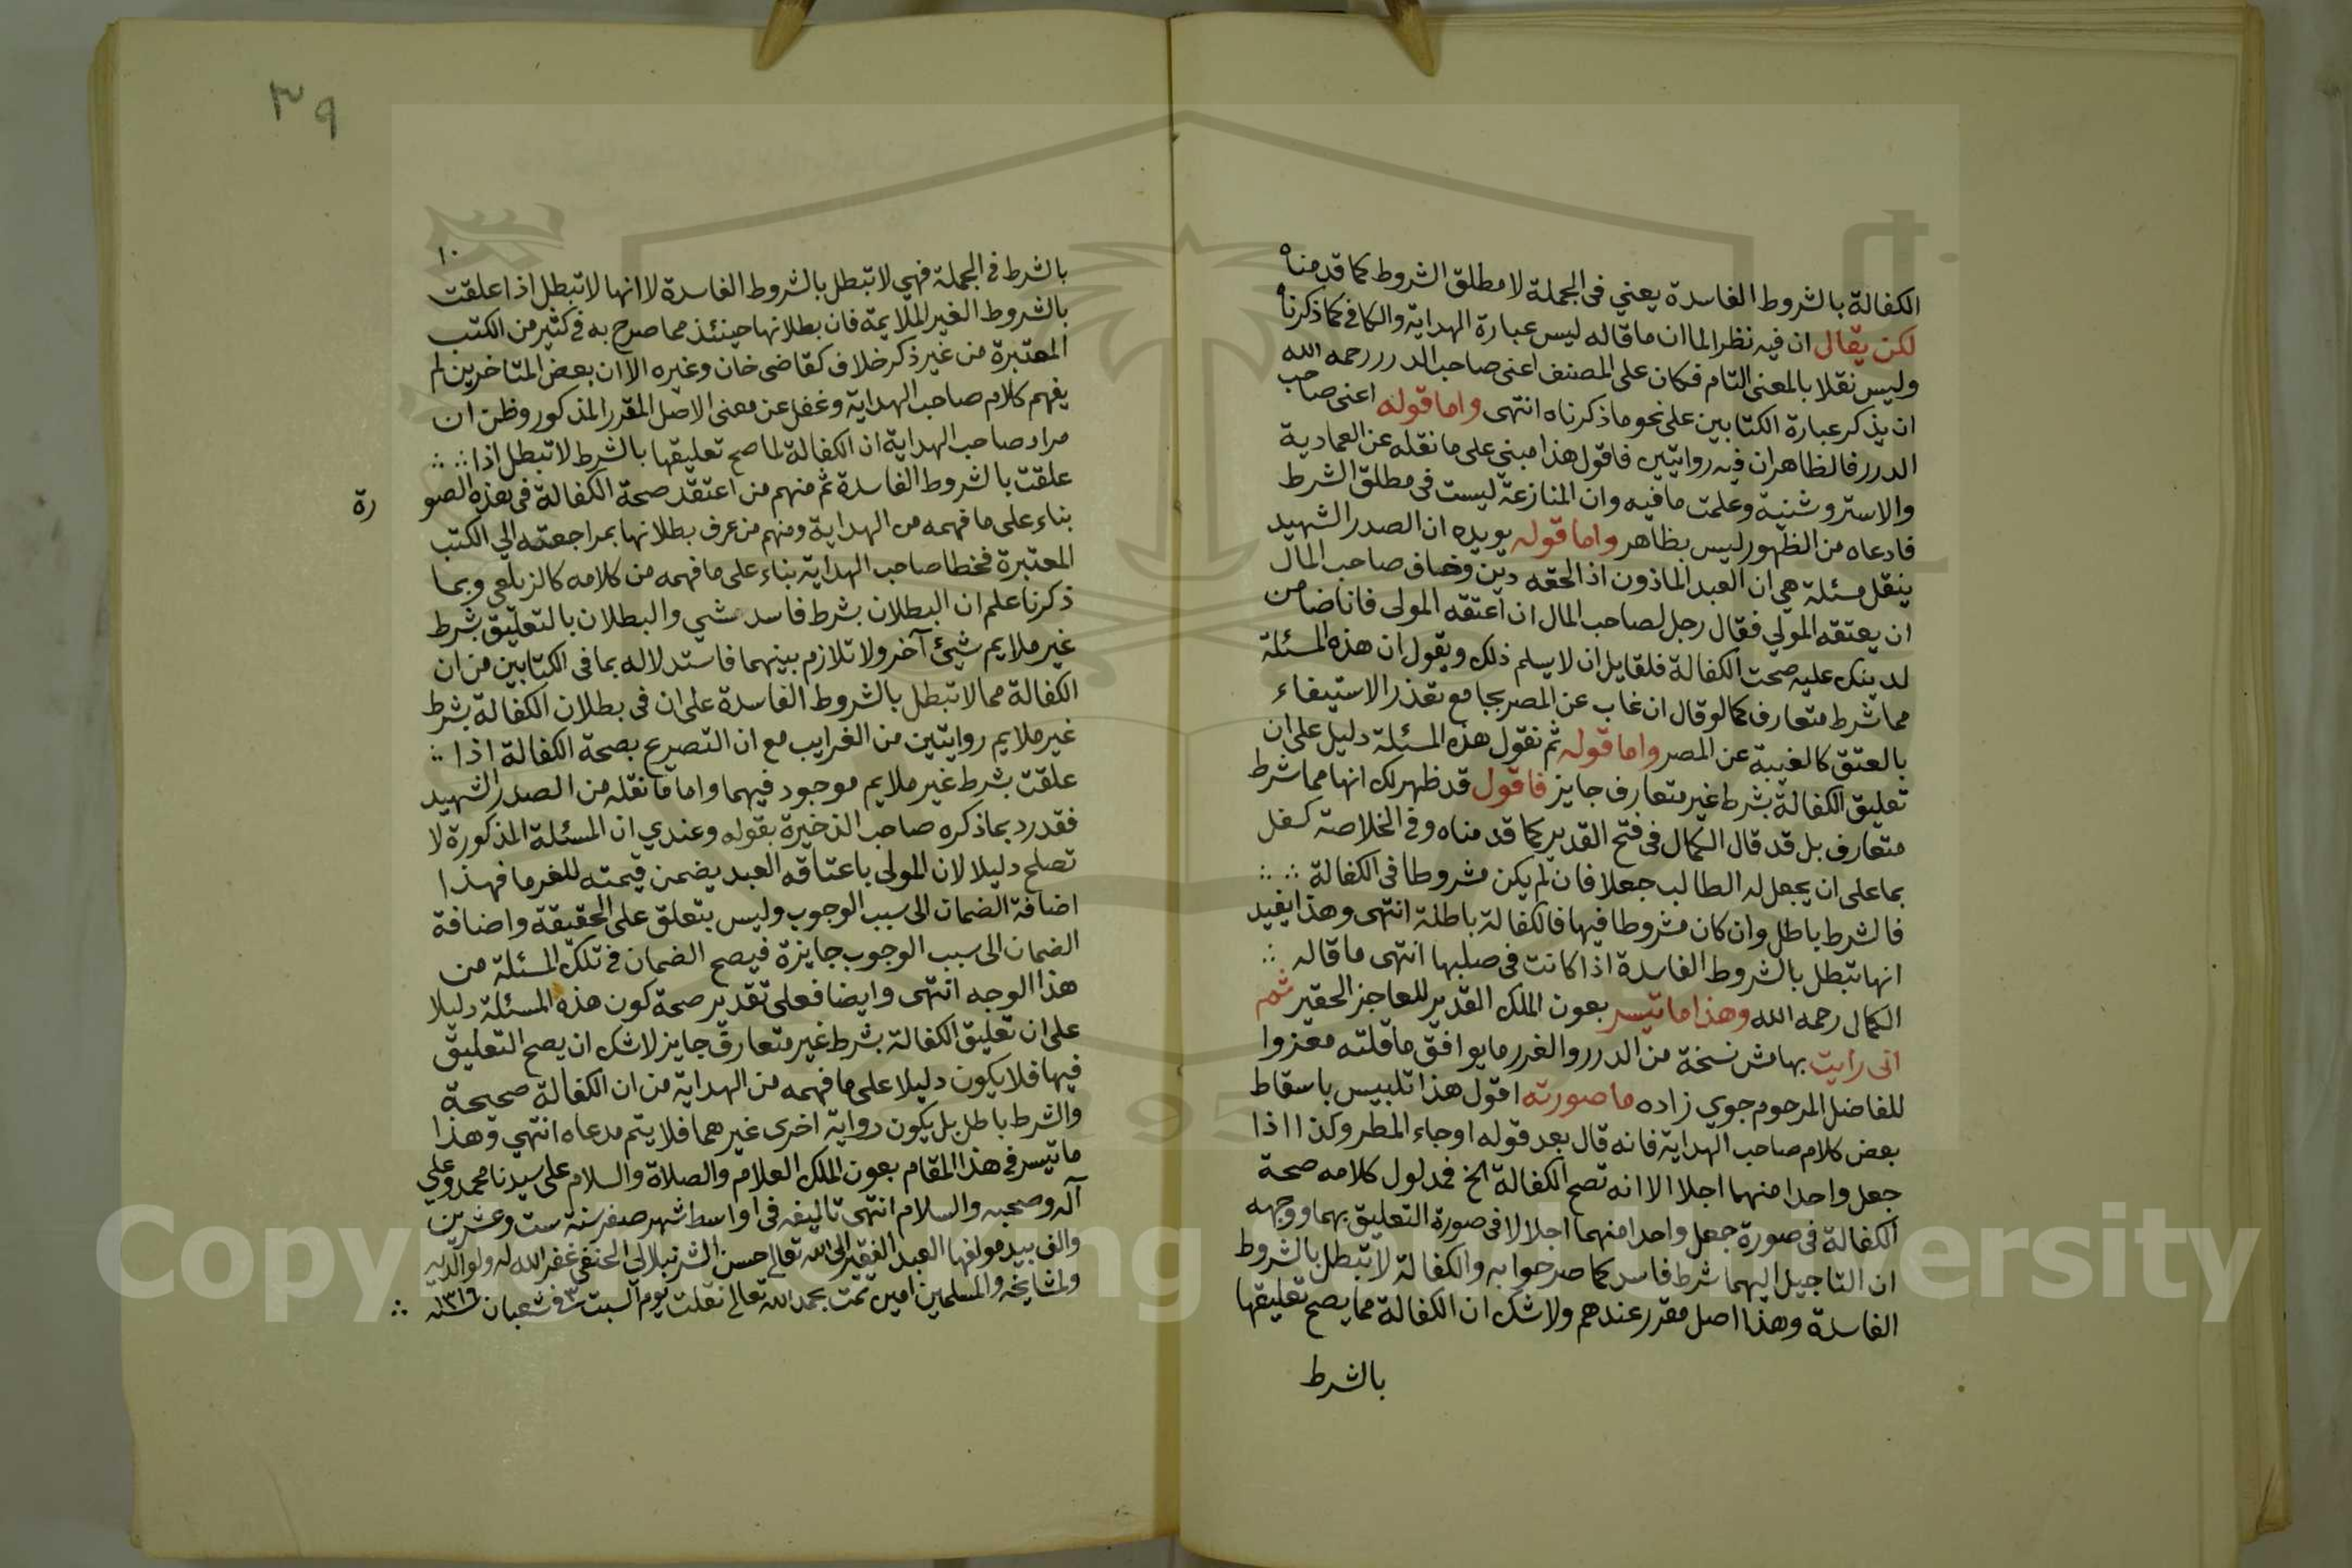 الكفالة بالشروط الفاسدة يعني فى الجملة لا مطلق الشروط كما قدمناه
لكن يقال ان فيه نظرا لما ان ما قاله ليس عبارة الهداية والكافي كما ذكرنا
وليس نقلا بالمعنى التام فكان على المصنف اعنى صاحب الدرر رحمه الله
ان يذكر عبارة الكتابين على نحو ما ذكرناه انتهى واما قوله اعنى صاحب
الدرر فالظاهر ان فيه روايتين فاقول هذا مبني على ما نقله عن العمادية
والاستروشنية وعلمت ما فيه وان المنازعة ليست فى مطلق الشرط
فادعاه من الظهور ليس بظاهر واما قوله يويده ان الصدر الشهيد
ينقل مسئلة هي ان العبد الماذون اذا لحقه دين وخاف صاحب المال
ان يعتقه المولي فقال رجل لصاحب المال ان اعتقه المولى فانا ضامن
لدينك عليه صحت الكفالة فلقايل ان لا يسلم ذلك ويقول ان هذه المسئلة
مما شرط متعارف كما لو قال ان غاب عن المصر بجامع تعذر الاستيفاء
بالعتق كالغيبة عن المصر واما قوله ثم نقول هذه المسئلة دليل على ان
تعليق الكفالة بشرط غير متعارف جايز فاقول قد ظهر لك انها مما شرط
متعارف بل قد قال الكمال فى فتح القدير كما قدمناه وفى الخلاصة كفل
بما على ان يجعل له الطالب جعلا فان لم يكن مشروطا فى الكفالة
فالشرط باطل وان كان مشروطا فيها فالكفالة باطلة انتهى وهذا يفيد
انها تبطل بالشروط الفاسدة اذا كانت فى صلبها انتهى ما قاله
الكمال رحمه الله وهذا ما تيسر بعون الملك القدير للعاجز الحقير ثم
انى رايت بهامش نسخة من الدرر والغرر ما يوافق ما قلته معزوا
للفاضل المرحوم جوي زاده ما صورته اقول هذا تلبيس باسقاط
بعض كلام صاحب الهداية فانه قال بعد قوله او جاء المطر وكذا اذا
جعل واحدا منهما اجلا الا انه تصح الكفالة الخ فمدلول كلامه صحة
الكفالة فى صورة جعل واحدا منهما اجلا لا فى صورة التعليق بهما ووجهه
ان التاجيل اليهما شرط فاسد كما صرحوا به والكفالة لا تبطل بالشروط
الفاسدة وهذا اصل مقرر عندهم ولا شك ان الكفالة مما يصح تعليقها
بالشرط
٣٩
١٠
بالشرط فى الجملة فهي لا تبطل بالشروط الفاسدة لا انها لا تبطل اذا علقت
بالشروط الغير الملايمة فان بطلانها حينئذ مما صرح به فى كثير من الكتب
المعتبرة من غير ذكر خلاف كقاضى خان وغيره الا ان بعض المتاخرين لم
يفهم كلام صاحب الهداية وغفل عن معنى الاصل المقرر المذكور وظن ان
مراد صاحب الهداية ان الكفالة لما صح تعليقها بالشرط لا تبطل اذا
علقت بالشروط الفاسدة ثم منهم من اعتقد صحة الكفالة فى هذه الصو رة
بناء على ما فهمه من الهداية ومنهم من عرف بطلانها بمراجعته الي الكتب
المعتبرة فخطا صاحب الهداية بناء على ما فهمه من كلامه كالزيلعى وبما
ذكرنا علم ان البطلان بشرط فاسد شي والبطلان بالتعليق بشرط
غير ملايم شيئ آخر ولا تلازم بينهما فاستدلاله بما فى الكتابين من ان
الكفالة مما لا تبطل بالشروط الفاسدة على ان فى بطلان الكفالة بشرط
غير ملايم روايتين من الغرايب مع ان التصريح بصحة الكفالة اذا
علقت بشرط غير ملايم موجود فيهما واما ما نقله من الصدر الشهيد
فقد رد بما ذكره صاحب الذخيرة بقوله وعندي ان المسئلة المذكورة لا
تصلح دليلا لان المولى باعتاقه العبد يضمن قيمته للغرما فهذا
اضافة الضمان الى سبب الوجوب وليس بتعلق على الحقيقة واضافة
الضمان الى سبب الوجوب جايزة فيصح الضمان فى تلك المسئلة من
هذا الوجه انتهى وايضا فعلى تقدير صحة كون هذه المسئلة دليلا
على ان تعليق الكفالة بشرط غير متعارف جايز لا شك ان يصح التعليق
فيها فلا يكون دليلا على ما فهمه من الهداية من ان الكفالة صحيحة
والشرط باطل بل يكون رواية اخرى غيرهما فلا يتم مدعاه انتهي وهذا
ما تيسر فى هذا المقام بعون الملك العلام والصلاة والسلام على سيدنا محمد وعلي
آله وصحبه والسلام انتهى تاليفه فى اواسط شهر صفر سنة ست وعشرين
والف بيد مولفها العبد الفقير الى الله تعالى حسن الشرنبلالى الحنفى غفر الله له ولوالديه
ولمشايخه والمسلمين امين تمت بحمد الله تعالى نقلت يوم السبت ٣ فى شعبان ١٣١٦
Copyright © King Saud University
1957